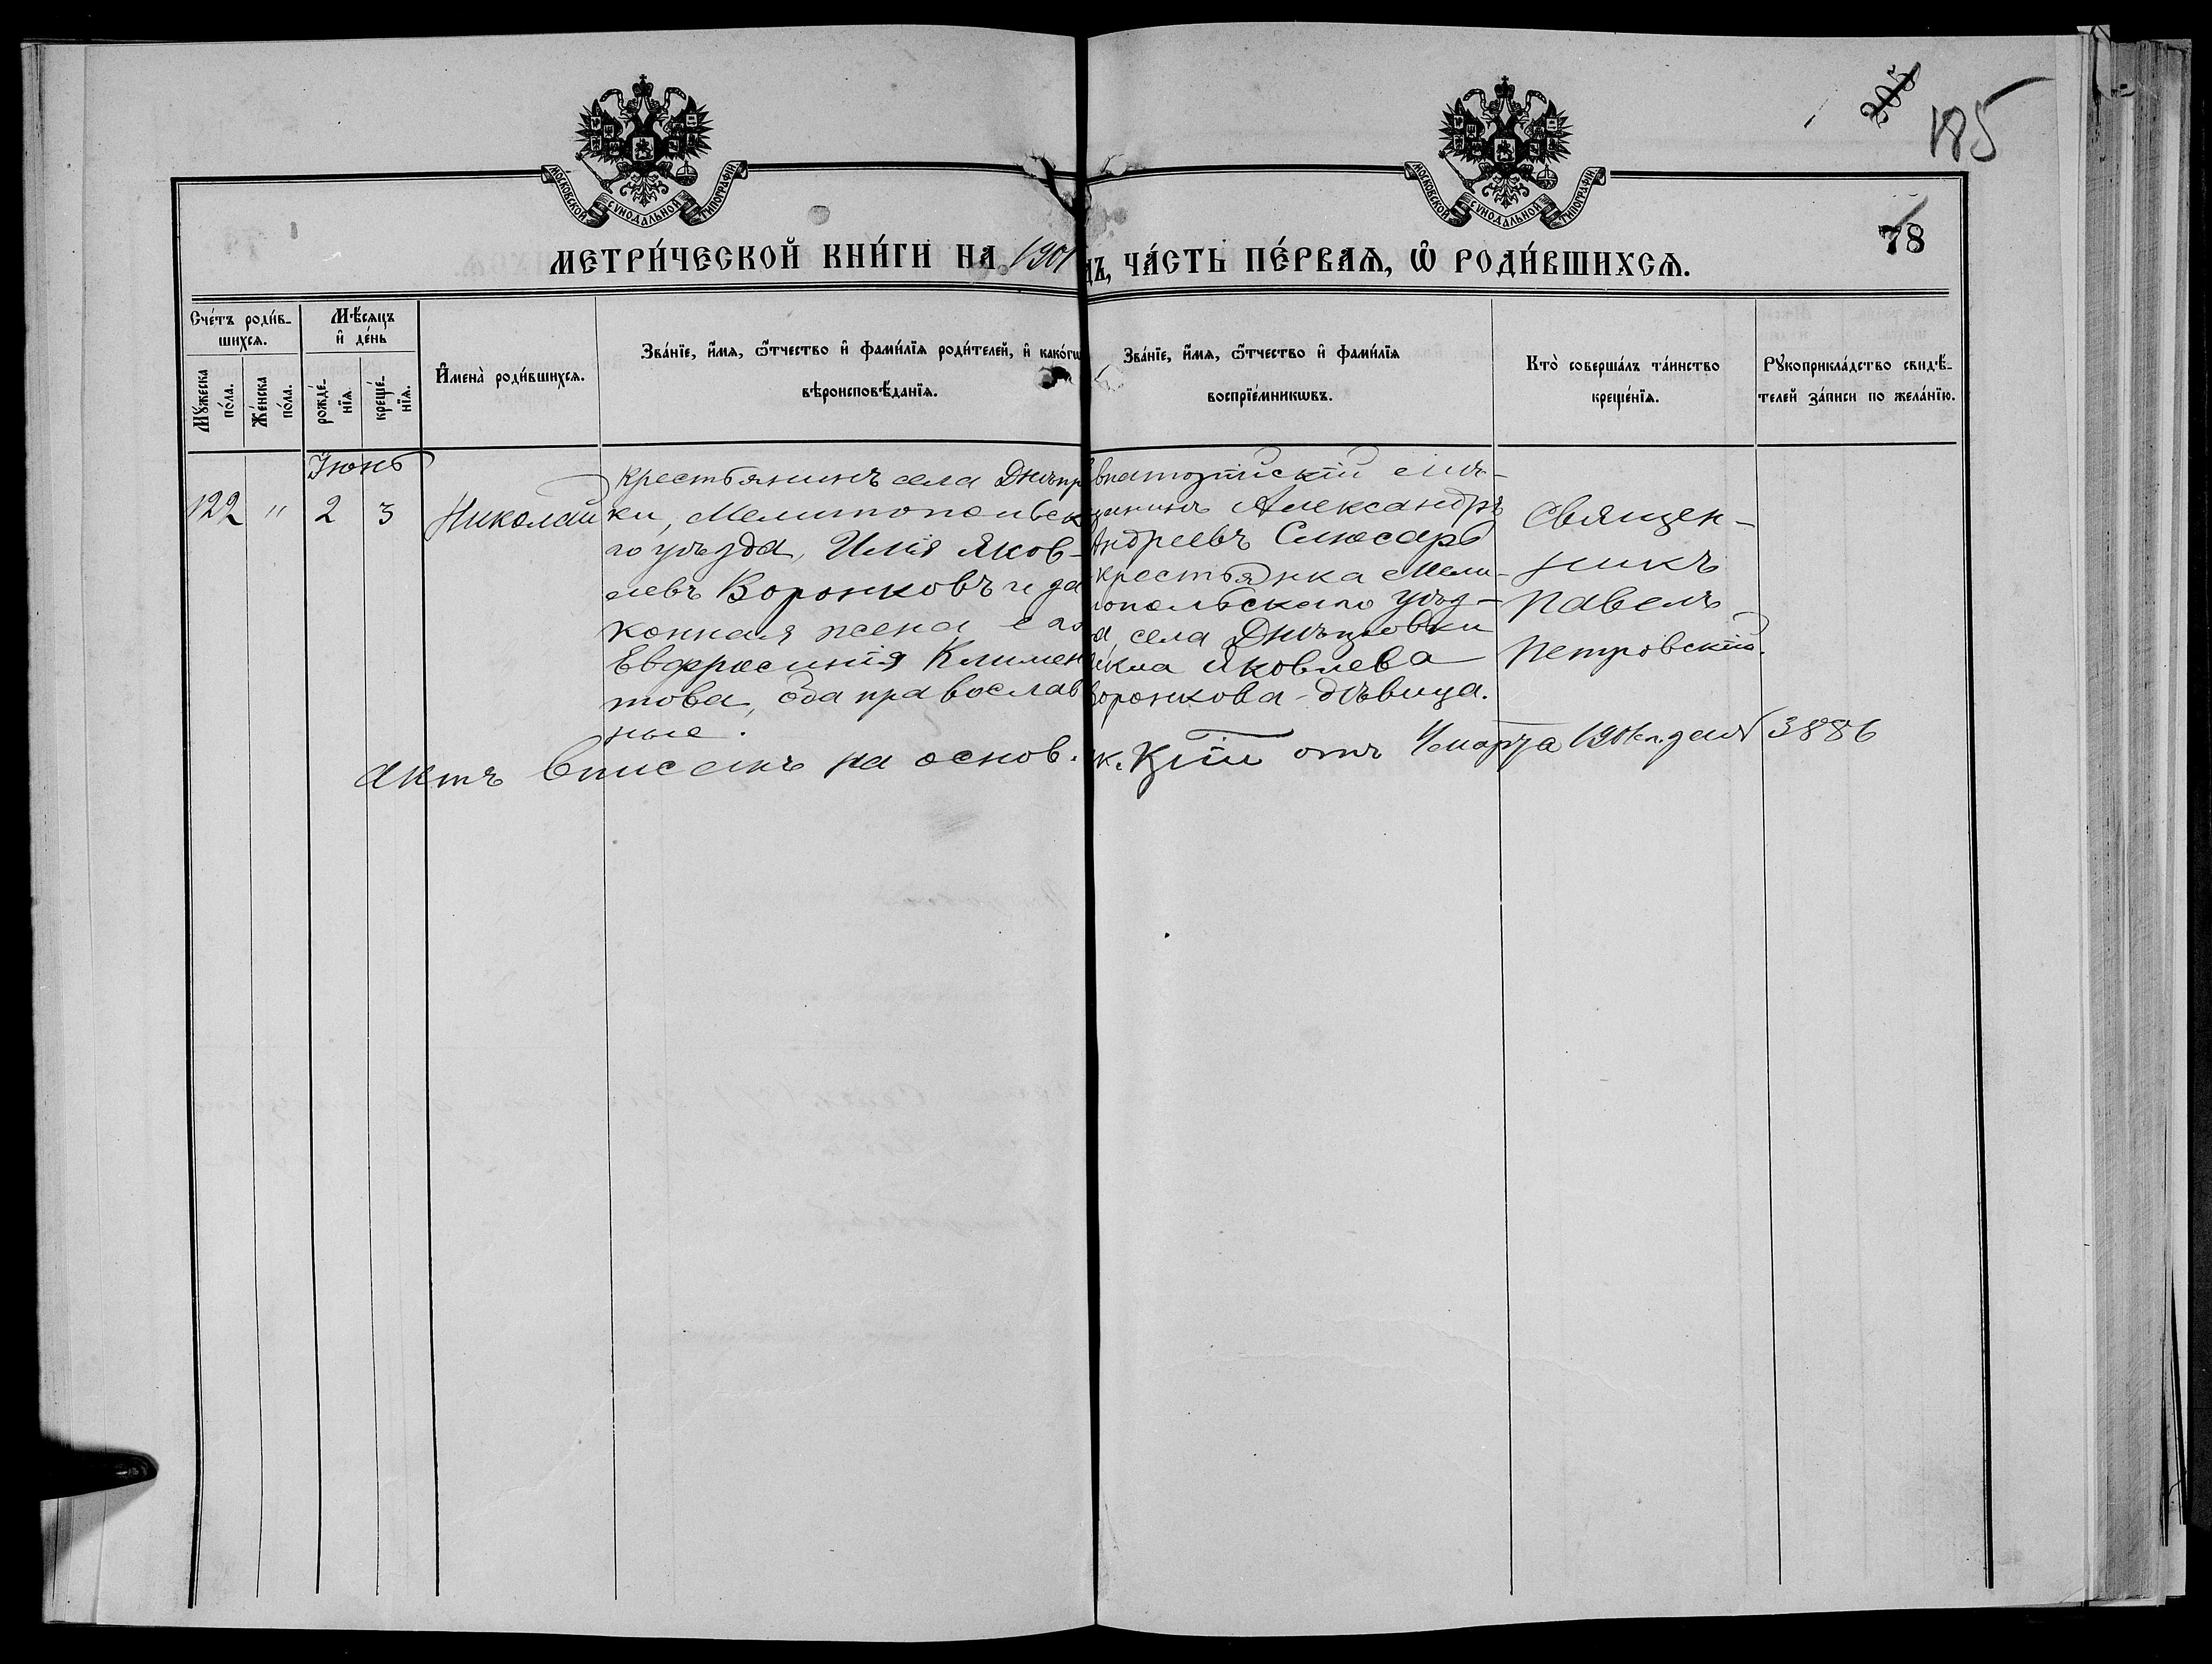 205
185
МОСКОВСКОЙ СѴНОДАЛЬНОЙ ТИПОГРАФІИ.
МОСКОВСКОЙ СѴНОДАЛЬНОЙ ТИПОГРАФІИ.
78
МЕТРИ́ЧЕСКОЙ КНИ́ГИ НА 1901
ДЪ, ЧА́СТЬ ПЕ́РВАѦ, Ѿ РОДИ́ВШИХСѦ.
Сче́тъ роди́в-
шихсѧ.
Мꙋжеска по́ла.
Же́нска по́ла.
Мѣ́сѧцъ
и҆ де́нь
рожде́-
нїѧ.
креще́-
нїѧ.
И҆мена̀ роди́вшихсѧ.
Зва́нїе, и҆́мѧ, ѻ҆́тчество и҆ фами́лїѧ роди́телей, и҆ како́гѡ
вѣроисповѣ́данїѧ.
Зва́нїе, и҆́мѧ, ѻ҆́тчество и҆ фами́лїѧ
воспрїе́мникѡвъ.
Кто̀ соверша́лъ та́инство
креще́нїѧ.
Рꙋкоприкла́дство свидѣ́-
телей за́писи по жела́нїю.
Іюнь
122 " 2 3 Николай
Крестьянинъ села Днѣпр
ки, Мелитопольск
го уѣзда, Илія Яков-
левъ Воронковъ и за
конная жена его
Евфросинія Климен
това, оба православ
ные.
впаторійскій мѣ-
щанинъ Александръ
Андреевъ Слюсарь
крестьянка Мели-
топольскаго уѣз-
да села Днѣпровки
екла Яковлева
Воронкова - дѣвица.
Священ-
никъ
Павелъ
Петровскій.
актъ вписанъ на основ. ук. Кзіи отъ 4 марта 1906 г. за № 3886